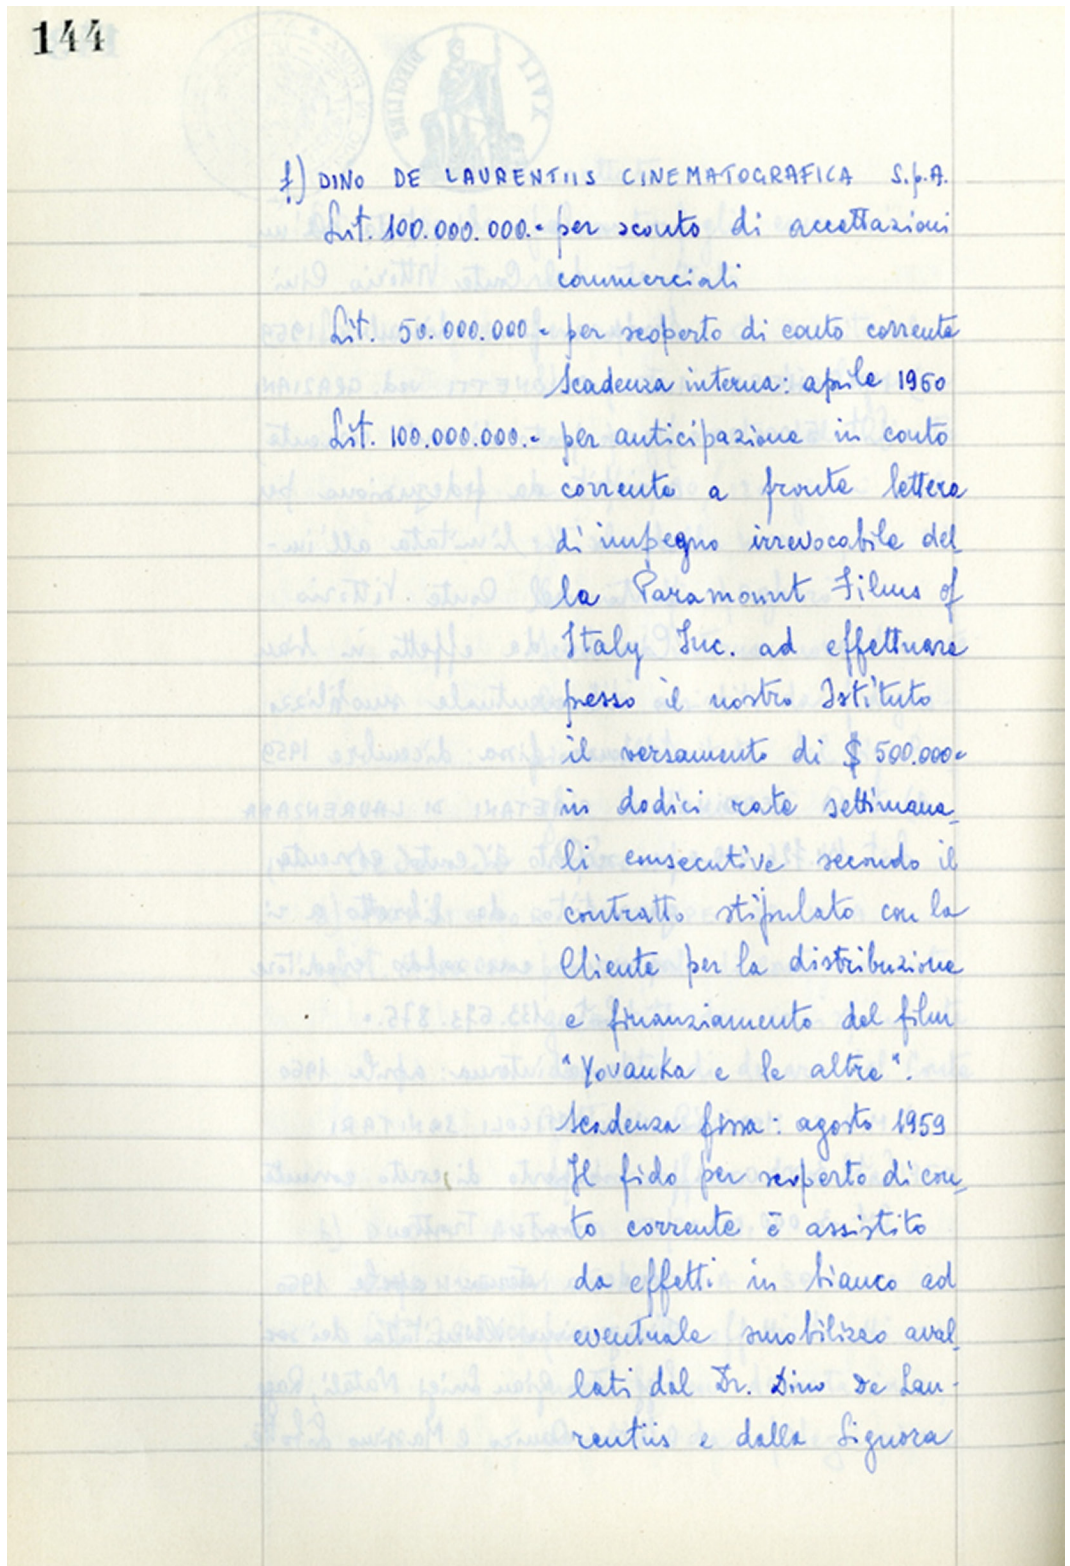 144
f) DINO DE LAURENTIIS CINEMATOGRAFICA S.p.A.
Lit. 100.000.000.- per sconto di accettazioni
commerciali
Lit. 50.000.000- per scoperto di conto corrente
scadenza interna: aprile 1960
Lit. 100.000.000.- per anticipazione in conto
corrente a fronte lettera
di impegno irrevocabile del_
la Paramount Films of
Italy Inc. ad effettuare
presso il nostro Istituto
il versamento di $ 500.000-
in dodici rate settimana_
li consecutive secondo il
contratto stipulato con la
Cliente per la distribuzione
e finanziamento del film
"Yovanka e le altre".
scadenza fissa: agosto 1959
Il fido per scoperto di con_
to corrente è assistito
da effetti in bianco ad
eventuale smobilizzo aval_
lati dal Dr. Dino De Lau-
rentiis e dalla Signora